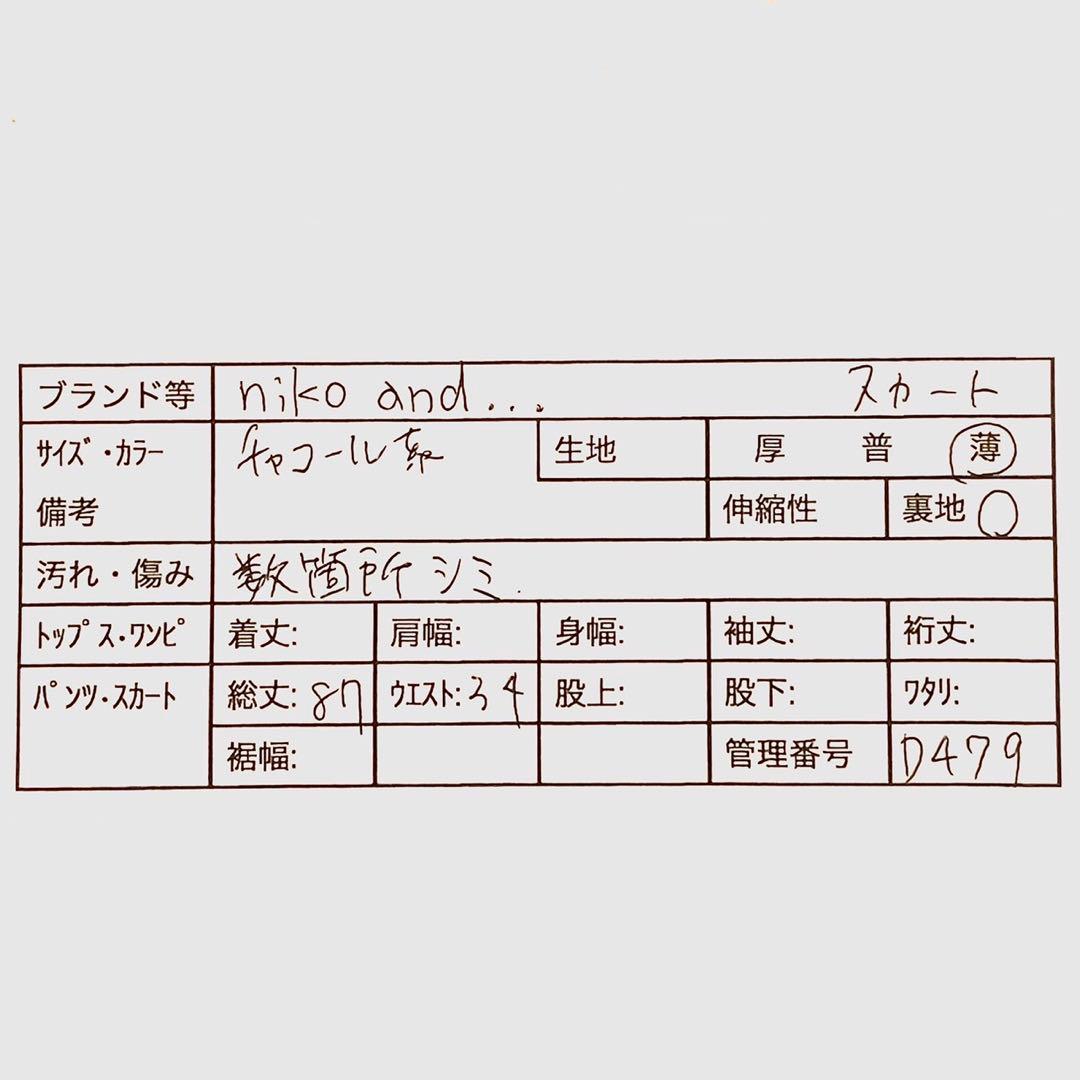 ブランド等 niko and... スカート
サイズ・カラー チャコール系 生地 厚 普 薄
備考 伸縮性 裏地 ○
汚れ・傷み 数箇所シミ.
トップス・ワンピ 着丈: 肩幅: 身幅: 袖丈: 裄丈:
パンツ・スカート 総丈: 87 ウエスト: 34 股上: 股下: ワタリ:
裾幅: 管理番号 D479